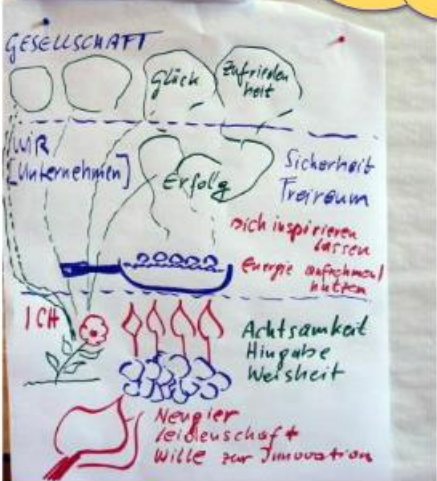 GESELLSCHAFT
Glück
Zufrieden
heit
WIR
[Unternehmen]
Erfolg
Sicherheit
Freiraum
sich inspirieren
lassen
Energie aufnehmen/
nutzen
ICH
Achtsamkeit
Hingabe
Weisheit
Neugier
Leidenschaft
Wille zur Innovation